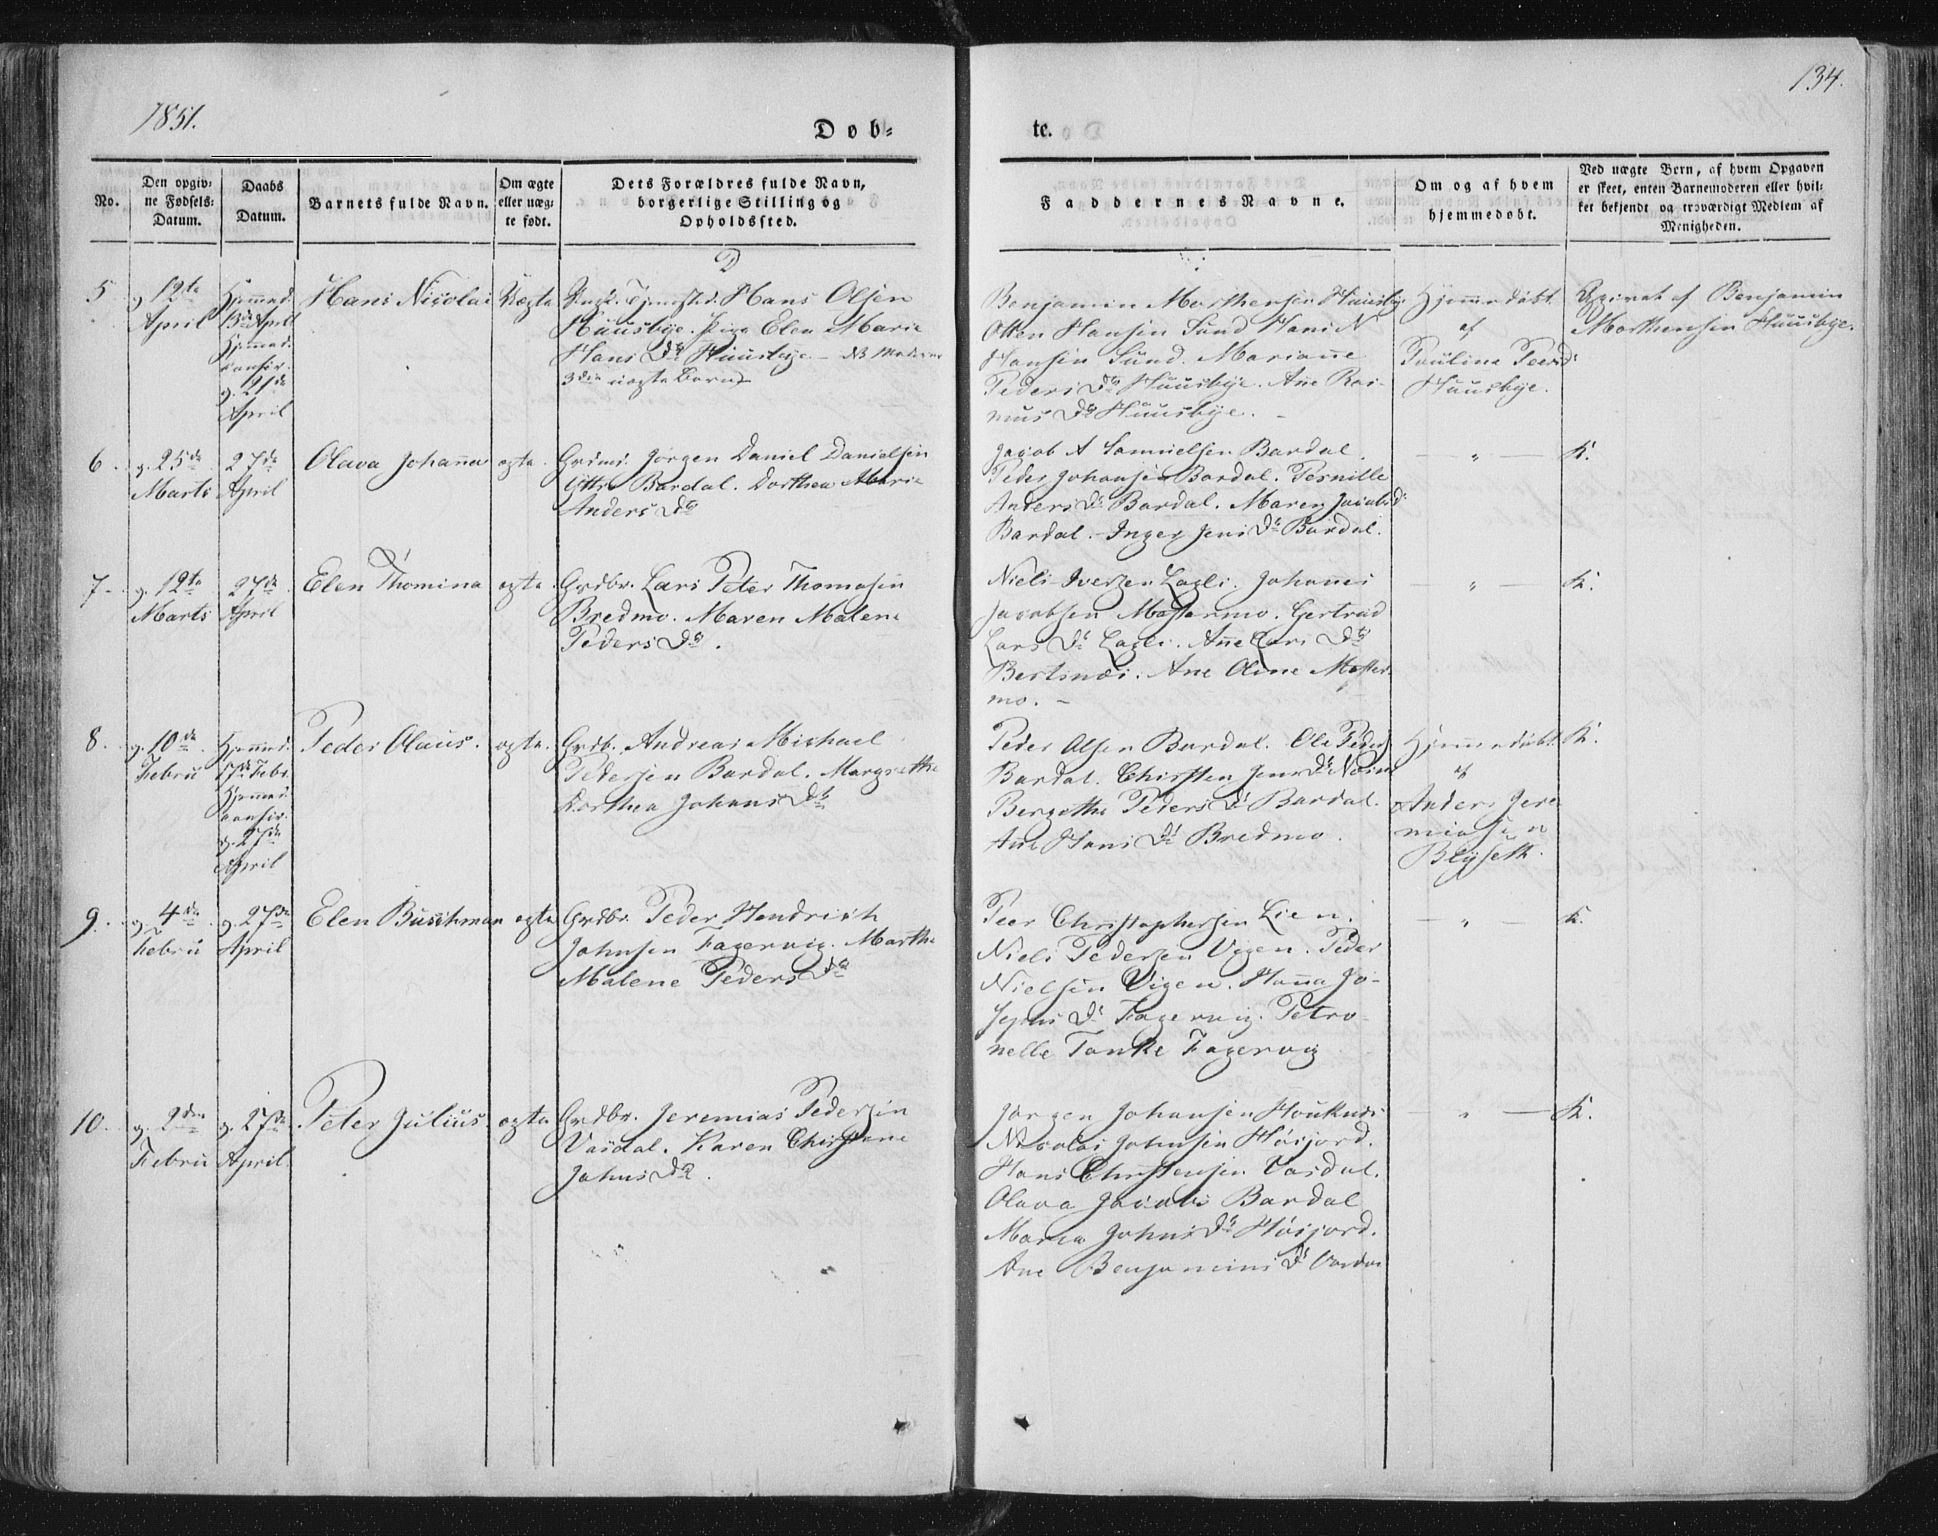 1851.
Døb-
No.
Den opgiv-
ne Fødsels-
Datum.
Daabs
Datum.
Barnets fulde Navn.
Om ægte
eller uæg-
te født.
Dets Forældres fulde Navn,
borgerlige Stilling og
Opholdssted.
D
5
d. 12te
April
Hjemmed.
April
Hjemmed.
d. 21de
April
Hans Nicolai
Uægte
Hans Olsen
Huusbye. Pige Elen Marie
Hans Dr Huusbye - NB Moderens
3die uægte Barn
6
d. 25de
Marts
27de
April
Olava Johanna
ægte
Grdmd. Jørgen Daniel Danielsen
Yttre Bardal. Dorthea Marie
Anders Dr
7
d. 12te
Marts
27de
April
Elen Thomina
ægte
Grdbr. Lars Peter Thomasen
Bredmo. Maren Malene
Peders Dr.
8.
d. 10de
Febru
Hjemmed.
17de Febr.
Hjemmed.
d. 27de
April
Peder Olaus.
ægte.
Grdb. Andreas Michael
Pedersen Bardal. Margrethe
Dorthea Johans Dr
9.
d. 4de
Febru
d. 27de
April
Elen Buschman
ægte
Grdbr. Peder Hendrich
Johnsen Fagervig. Marthe
Malene Peders Dr
10.
d. 2den
Febru
d. 27de
April
Peter Julius
ægte
Grdbr. Jeremias Pedersen
Vasdal. Karen Christine
Johns Dr.
134.
te.
Faddernes Navne.
Om og af hvem
hjemmedøbt.
Ved uægte Børn, af hvem Opgaven
er skeet, enten Barnemoderen eller hvil-
ket bekjendt og troværdigt Medlem af
Menigheden.
Benjamin Morthensen Huusby
Otten Hansen Sund Hans N
Hansen Sund. Mariane
Peders Dr Huusbye. Ane Ras-
mus Dr Huusbye. -
Hjemmedøbt
af
Pauline Peers Dr
Huusbye.
Opgivet af Benjamin
Morthensen Huusbye.
Jacob A Samuelsen Bardal.
Peder Johansen Bardal. Pernille
Anders Dr Bardal. Maren Jacobs Dr
Bardal. - Inger Jens Dr Bardal.
— " —
K.
Niels Iversen Lagli. Johannes
Jacobsen Mostermo. Gertrud
Lars Dr Lagli. Ane Lars Dr
Ane Oline Moster-
mo. -
— " —
K.
Peder Olsen Bardal. Ole Peders
Bardal. Christen Jens Dr
Bergethe Peders Dr Bardal.
Ane Hans Dr Bredmo.
Hjemmedøbt
af
Anders Jere
miasen
K.
Peer Christophersen Lien.
Niels Pedersen Vigen. Peder
Nielsen Vigen. Hanna Jo-
sephs Dr Fagervig. Petro-
nelle Tanke Fagervig
— " —
K.
Jørgen Johansen Houknes
Nicolai Johnsen Høisjord.
Hans Christensen Vasdal.
Olava Jacobs Bardal
Maria Johns Dr Høisjord.
Ane Benjamins Dr Vasdal
— " —
K.